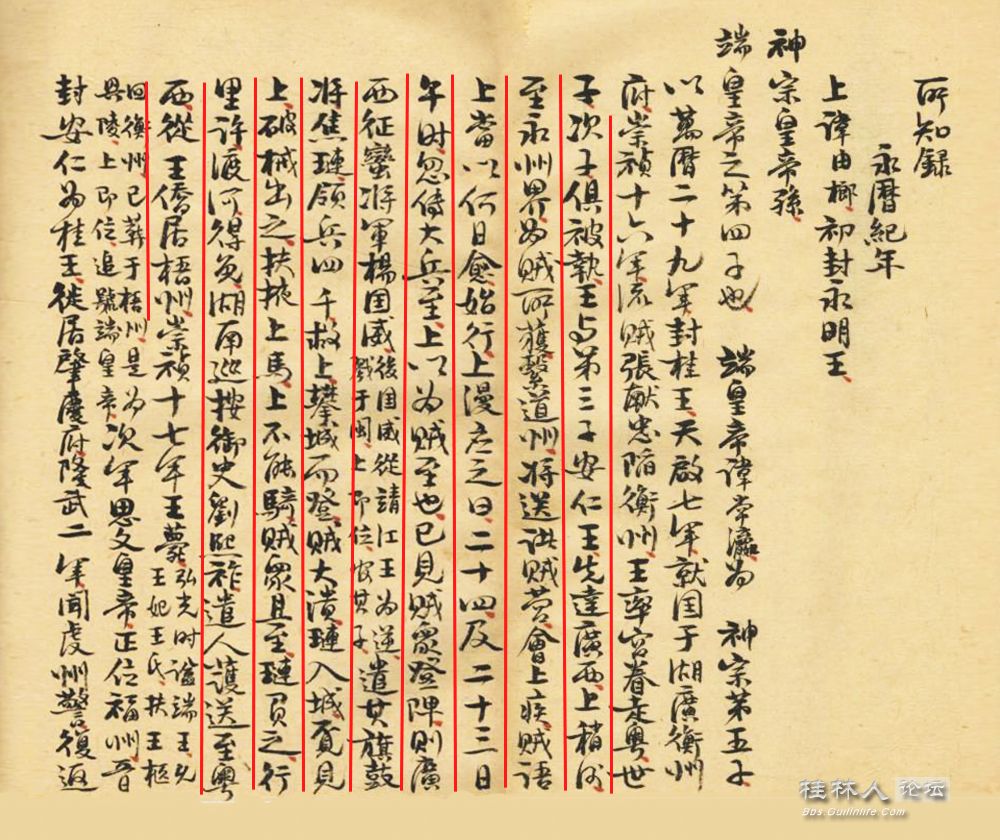 所知録
永暦紀年
上諱由榔初封永明王
神宗皇帝孫
端皇帝之第四子也 端皇帝諱常瀛為 神宗第五子
以萬暦二十九年封桂王天啟七年就国于湖廣衡州
府崇禎十六年流賊張献忠陷衡州王率宮眷走粤世
子次子俱被執王与第三子安仁王先達廣西上稍
至永州界為賊所獲繫道州将送賊营會上疾賊語
上當以何日愈始行上漫应之曰二十四及二十三日
午时忽傳大兵至上以为賊至也已見賊衆登陴則廣
西征蠻将軍楊国威後国威從靖江王为逆戮于閩上即位官其子遣其旗鼓
将焦璉領兵四千救上攀城而登賊大潰璉入城覓見
上破械出之扶掖上馬上不能騎賊衆且至璉負之行
里許渡河得免湖南巡按御史劉熙祚遣人護送至粤
西從王僑居梧州崇禎十七年王薨弘光时謚端王王妃王氏扶王柩
回衡州已葬于梧州是为興陵上即位追號端皇帝次年思文皇帝正位福州首
封安仁为桂王徙居肇慶府隆武二年聞虔州警復返
桂林人论坛
Bbs.Guilinlife.com